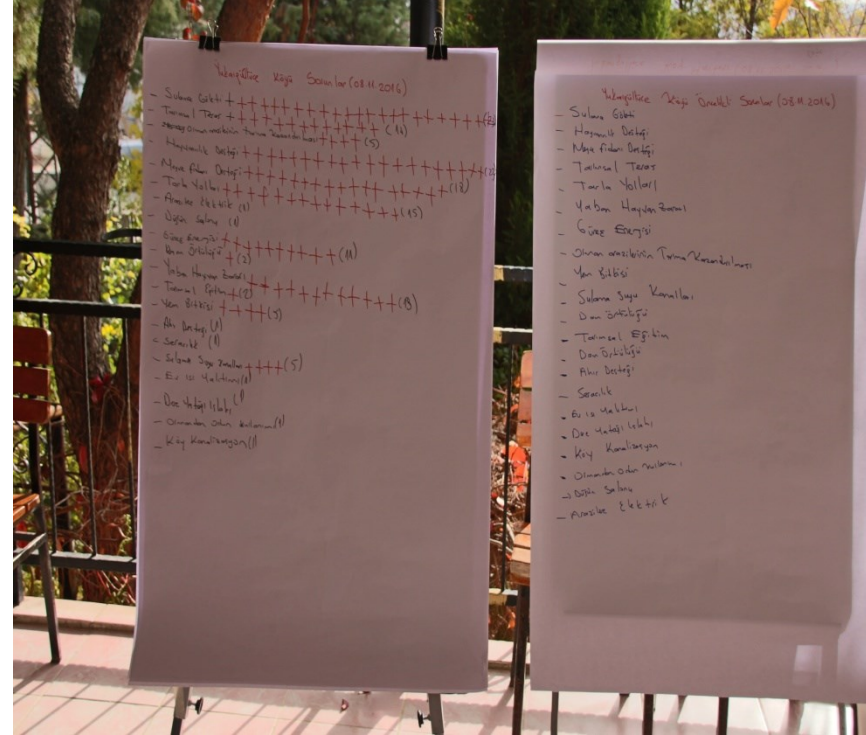 Köyü Sorunlar (08.11.2016)
- Sulama Göleti +++++++++++++++++++++
- Tarımsal Teras ++++++++++++++ (14)
- olunan arazibinin tarıma kazandırılması ++++ (5)
- Hayvancılık Desteği ++++++++++++++++++++
- Meyve fidanı Desteği ++++++++++++++++++ (18)
- Tarla Yolları +++++++++++++++ (15)
- Arazibe Elektrik (1)
- Düğün Salonu (1)
- Güneş Energisi +++++++++++ (11)
- Dam Örtülüğü + (2)
- Yaban Hayvan Zararı
- Tarımsal Eğitim + (2)
- Yem Bitkisi ++++ (5)
- Ahır Desteği (1)
- Seracılık (1)
- Sulama Suyu Kanalları ++++ (5)
- Ev ısı Yalıtımı (1)
- Dere Yatağı Islahı (1)
- Ormandan odun kullanımı (1)
- Köy Kanalizasyon (1)
Köyü Öncelikli Sorunlar (08.11.2016)
- Sulama Göleti
- Hayvancılık Desteği
- Meyve fidanı Desteği
- Tarımsal Teras
- Tarla Yolları
- Yaban Hayvan Zararı
- Güneş Energisi
- Olunan arazibinin Tarıma Kazandırılması
- Yem Bitkisi
- Sulama Suyu Kanalları
- Dam Örtülüğü
- Tarımsal Eğitim
- Dam Örtülüğü
- Ahır Desteği
- Seracılık
- Ev ısı Yalıtımı
- Dere Yatağı Islahı
- Köy Kanalizasyon
- Ormandan odun kullanımı
-> Düğün Salonu
- Arazibe Elektrik